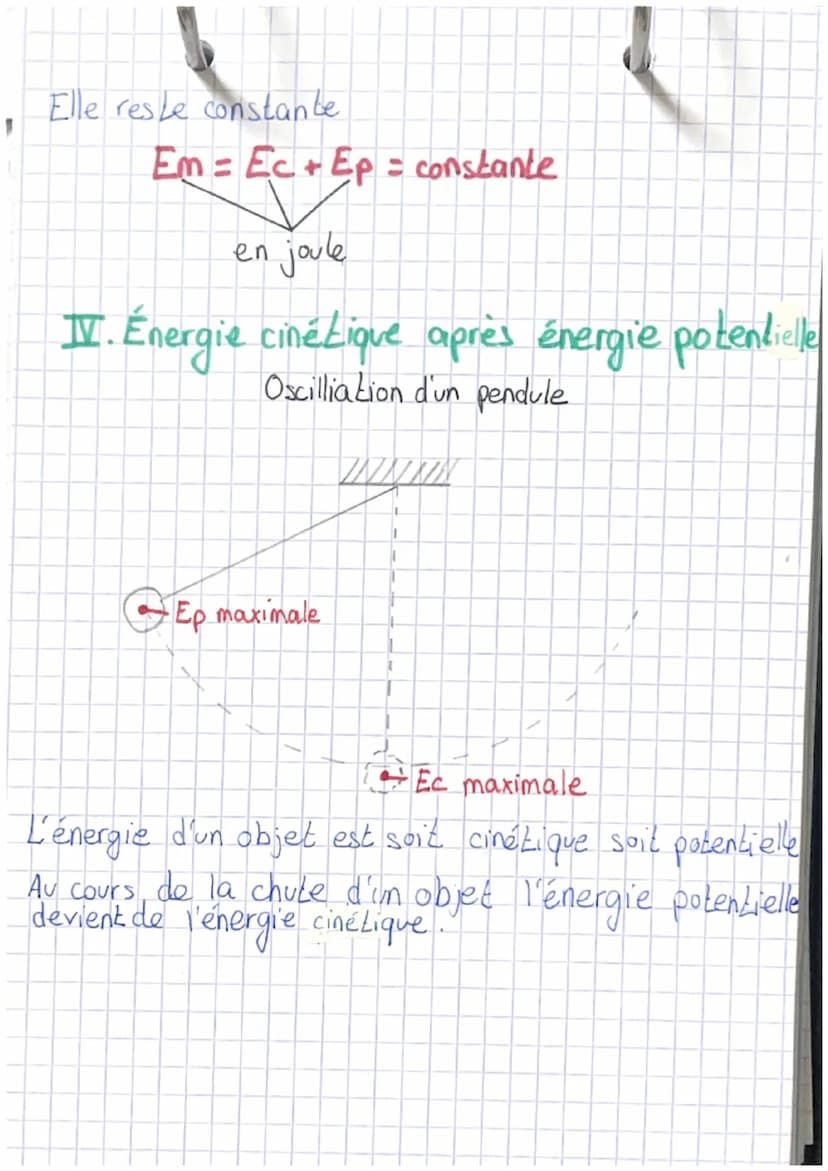 Elle reste constante
Em = Ec + Ep = constante
en joule
IV. Énergie cinétique après énergie potentielle
Oscilliation d'un pendule
Ep maximale
Ec maximale
L'énergie d'un objet est soit cinétique soit potentielle
Au cours de la chute d'un objet l'énergie potentielle
devient de l'énergie cinétique.